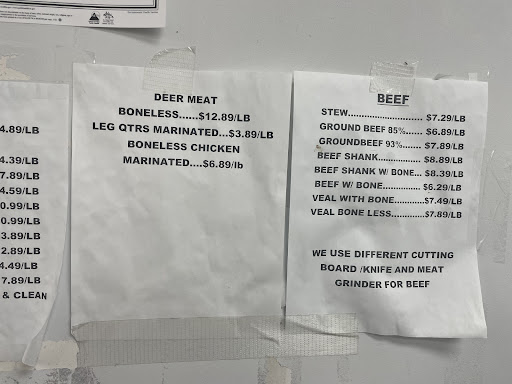 4.89/LB
4.39/LB
7.89/LB
4.59/LB
0.99/LB
0.99/LB
3.89/LB
2.89/LB
4.49/LB
7.89/LB
& CLEAN
DEER MEAT
BONELESS......$12.89/LB
LEG QTRS MARINATED...$3.89/LB
BONELESS CHICKEN
MARINATED....$6.89/lb
BEEF
STEW.......................... $7.29/LB
GROUND BEEF 85%...... $6.89/LB
GROUNDBEEF 93%....... $7.89/LB
BEEF SHANK............... $8.89/LB
BEEF SHANK W/ BONE... $8.39/LB
BEEF W/ BONE............. $6.29/LB
VEAL WITH BONE..........$7.49/LB
VEAL BONE LESS............$7.89/LB
WE USE DIFFERENT CUTTING
BOARD /KNIFE AND MEAT
GRINDER FOR BEEF